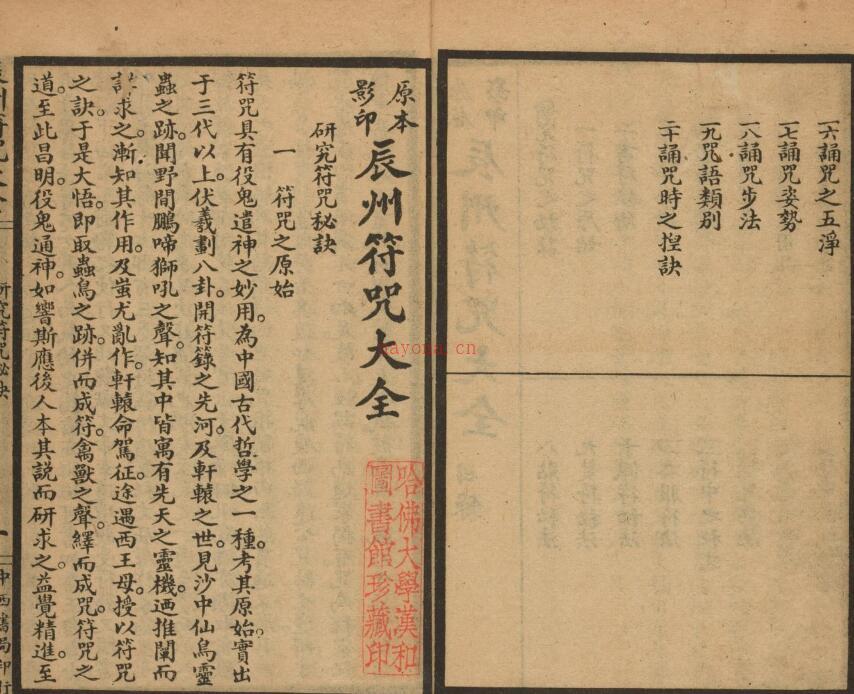 一六誦咒之五淨
一七誦咒姿勢
一八誦咒步法
一九咒語類別
二十誦咒時之揑訣
原本
影印
辰州符咒大全
研究符咒秘訣
一 符咒之原始
符咒具有役鬼遣神之妙用。為中國古代哲學之一種。考其原始。實出
于三代以上。伏羲劃八卦。開符籙之先河。及軒轅之世。見沙中仙鳥靈
蟲之跡。聞野間鵬啼獅吼之聲。知其中皆寓有先天之靈機。迺推闡而
求之。漸知其作用。及蚩尤亂作。軒轅命駕征。途遇西王母。授以符咒
之訣。于是大悟。即取蟲鳥之跡。併而成符。禽獸之聲。繹而成咒。符咒之
道。至此昌明。役鬼通神。如響斯應。後人本其說而研求之。益覺精進。至
研究符咒秘訣
一
中西書局印行
哈佛大學漢和
圖書館珍藏印
nayona.cn